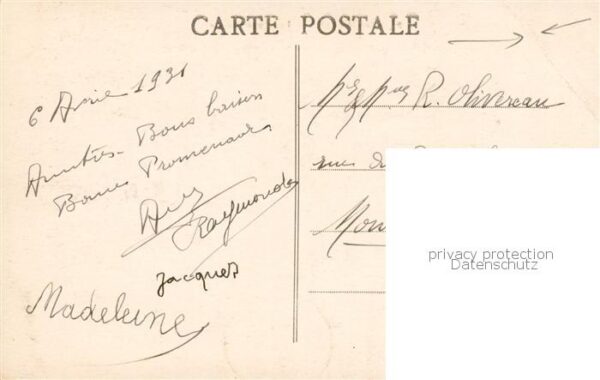 CARTE POSTALE
6 Avril 1931
Bons baisers
Bonnes Promenades
Raymonde
Jacques
Madeleine
R. Olivreau
rue du
privacy protection
Datenschutz